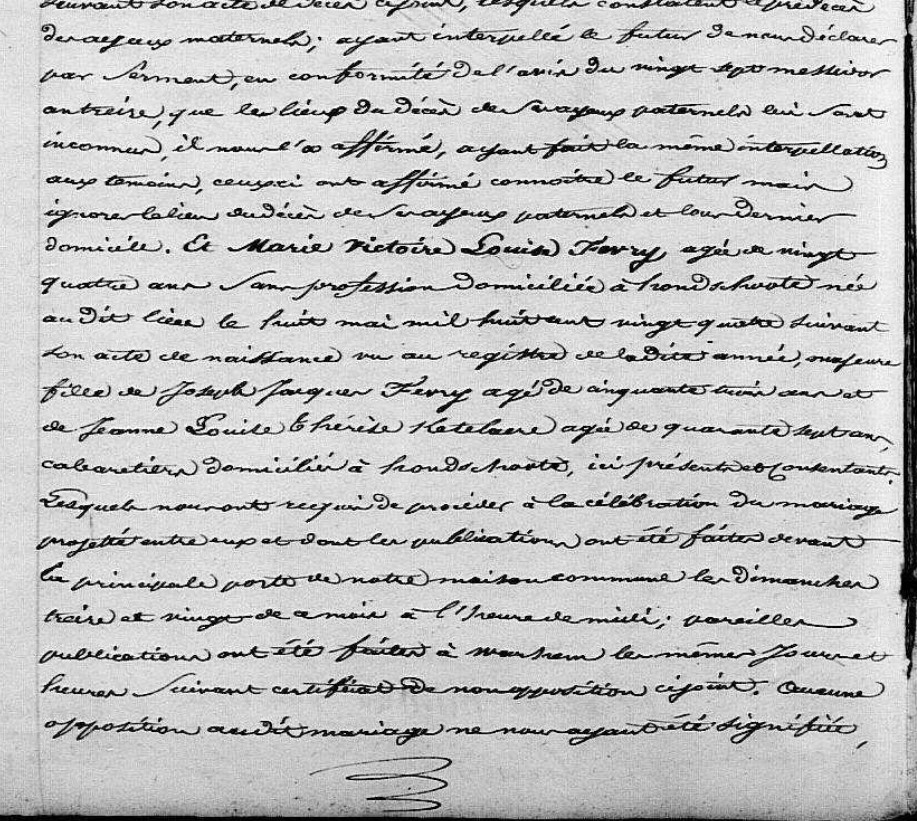 suivant son acte de décès cijoint, lesquels constatent le prédécès
des ayeux maternels; ayant interpellé le futur de nous déclarer
par serment, en conformité de l'avis du vingt sept messidor
an treize, que les lieux du décès de ses ayeux paternels lui sont
inconnus, il nous l'a affirmé, ayant fait la même interpellation
aux temoins, ceuxci ont affirmé connoitre le futur mais
ignorer le lieu du décès de ses ayeux paternels et leur dernier
domicile. Et Marie Victoire Louise Ferry, agée de vingt
quatre ans sans profession domiciliée à hondschoote née
audit lieu le huit mai mil huit cent vingt quatre suivant
son acte de naissance vu au registre de ladite année, majeure
fille de Joseph Jacques Ferry agé de cinquante trois ans et
de Jeanne Louise thérèse Ketelaere agée de quarante sept ans,
cabaretiers domiciliés à hondschoote, ici présents et Consentants.
Lesquels nous ont requis de procéder à la célébration du mariage
projetté entre eux et dont les publications ont été faites devant
la principale porte de notre maison commune les dimanches
treize et vingt de ce mois à l'heure de midi; pareilles
publications ont été faites à warhem les mêmes Jours et
heures suivant certificat de non opposition cijoint. Aucune
opposition audit mariage ne nous ayant été signifiée,